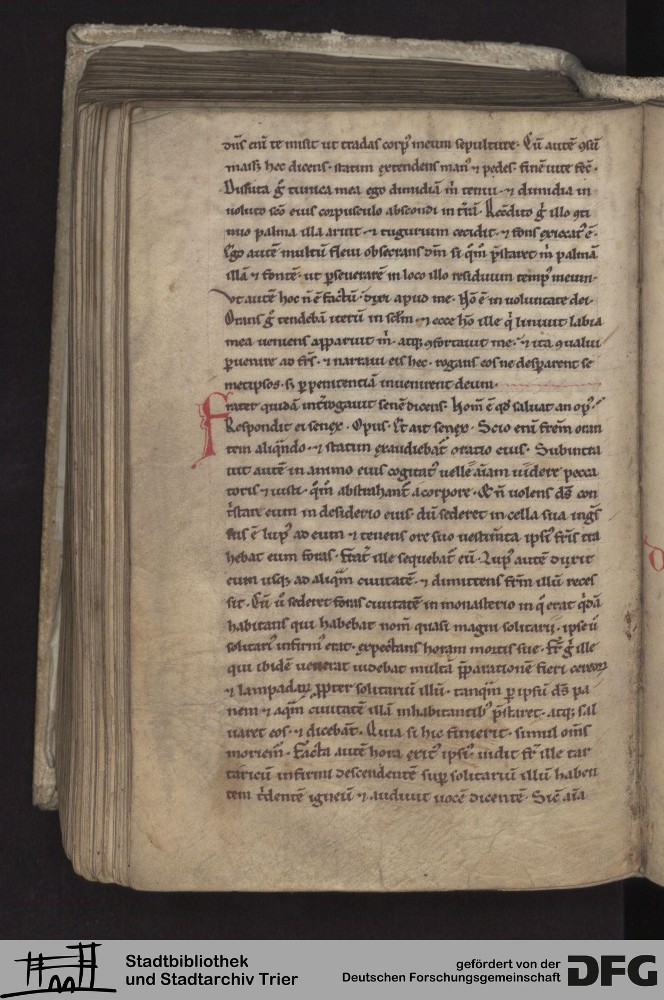 dn̄s eni͂ te misit ut tradas corpꝰ meum sepulture. Cū autē ꝯsū
hec dicens. statim extendens manꝰ ⁊ pedes. finē uite fec̄.
Diffuta g̊ tunica mea ego dimidiā m̄ tenui. ⁊ dimidia in
uoluto sc̄o eius corpusculo abscondi in t̄rā. Recōdito g̊ illo ꝯti
nuo palma illa aruit ⁊ tugurium cecidit. ⁊ fons exiccatꝰ ē.
Ego autē multū fleui obsecrans dm̄ si p̄staret m̄ palmā
illā ⁊ fontē. ut ꝑseuerarē in loco illo residuum tempꝰ meum.
Vt autē hoc n̄ ē factū. dixi apud me. Nō ē in uoluntate dei.
Orans g̊ tendebā iterū in sc̄lm̄. ⁊ ecce hō ille q̇ liniuit labia
mea ueniens apparuit m̄. atq; ꝯfortauit me. ⁊ ita ꝯualui
ꝑuenire ad fr̄s. ⁊ narraui eis hec. rogans eos ne desperent se
metipsos. s; ꝑ penitentiā inuenirent deum.
Frater quidā int̄rogauit senē dicens. Nom̄ ē qd̄ saluat an opꝰ.
Respondit ei senex. Opus. Et ait senex. Scio eni͂ frēm oran
tem aliqn̄do. ⁊ statim exaudiebat᷑ oratio eius. Subintra
uit autē in animo eius cogitatꝰ uelle aīam uidere pecca
toris ⁊ iusti. qm̄ abstrahant᷑ a corpore. Et n̄ uolens ds̄ con
t̄stare eum in desiderio eius. dū sederet in cella sua ingr̄s
sus ē lupꝰ ad eum ⁊ tenens ore suo uestim̄ta ipsiꝰ fr̄is tra
hebat eum foras. ille sequebat᷑ eū. Lupꝰ autē duxit
eum usq; ad aliqm̄ ciuitatē. ⁊ dimittens fr̄m illū reces
sit. Cū u̇ sederet foras ciuitatē in monasterio in q̊ erat q̇dā
habitans qui habebat nom̄ quasi magni solitarii. ipse u̇
solitariꝰ infirmꝰ erat. expectans horam mortis sue. Fr̄ g̊ ille
qui ibidē uenerat uidebat multā p̄parationē fieri cereoꝝ
⁊ lampadaꝝ ꝓpter solitariū illū. tanqm̄ ꝑ ipsū ds̄ pa
nem ⁊ aqm̄ ciuitatē illā inhabitantibꝰ p̄staret. atq; sal
uaret eos. ⁊ dicebāt. Quia si hic finierit. simul om̄s
moriem̄. Facta autē hora exitꝰ ipsiꝰ. uidit fr̄ ille tar
taricū infirmi descendentē suꝑ solitariū illū haben
tem t̄dentē igneū ⁊ audiuit uocē dicentē. Sic̄ aīa
Stadtbibliothek
und Stadtarchiv Trier
gefördert von der
Deutschen Forschungsgemeinschaft
DFG